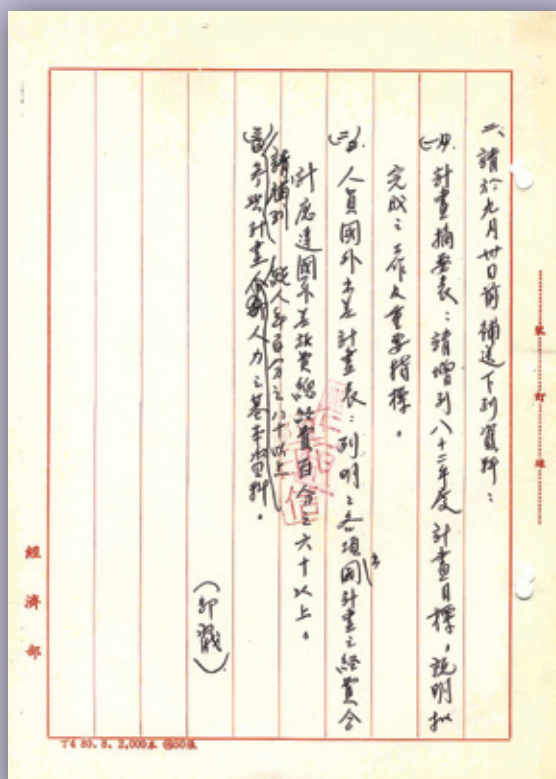 二、請於九月卅日前補送下列資料：
(一)計畫摘要表：請增列八十二年度計畫目標，說明擬
完成之工作及重要指標。
(二)人員國外出差計畫表：列明之各項國外計畫之經費合
計應達國外差旅費總經費百分之六十以上。
請補列 純人年百分之八十以上
(三)參與計畫人力之基本資料。
(印戳)
裝
訂
線
經濟部
74 80. 8. 2,000本